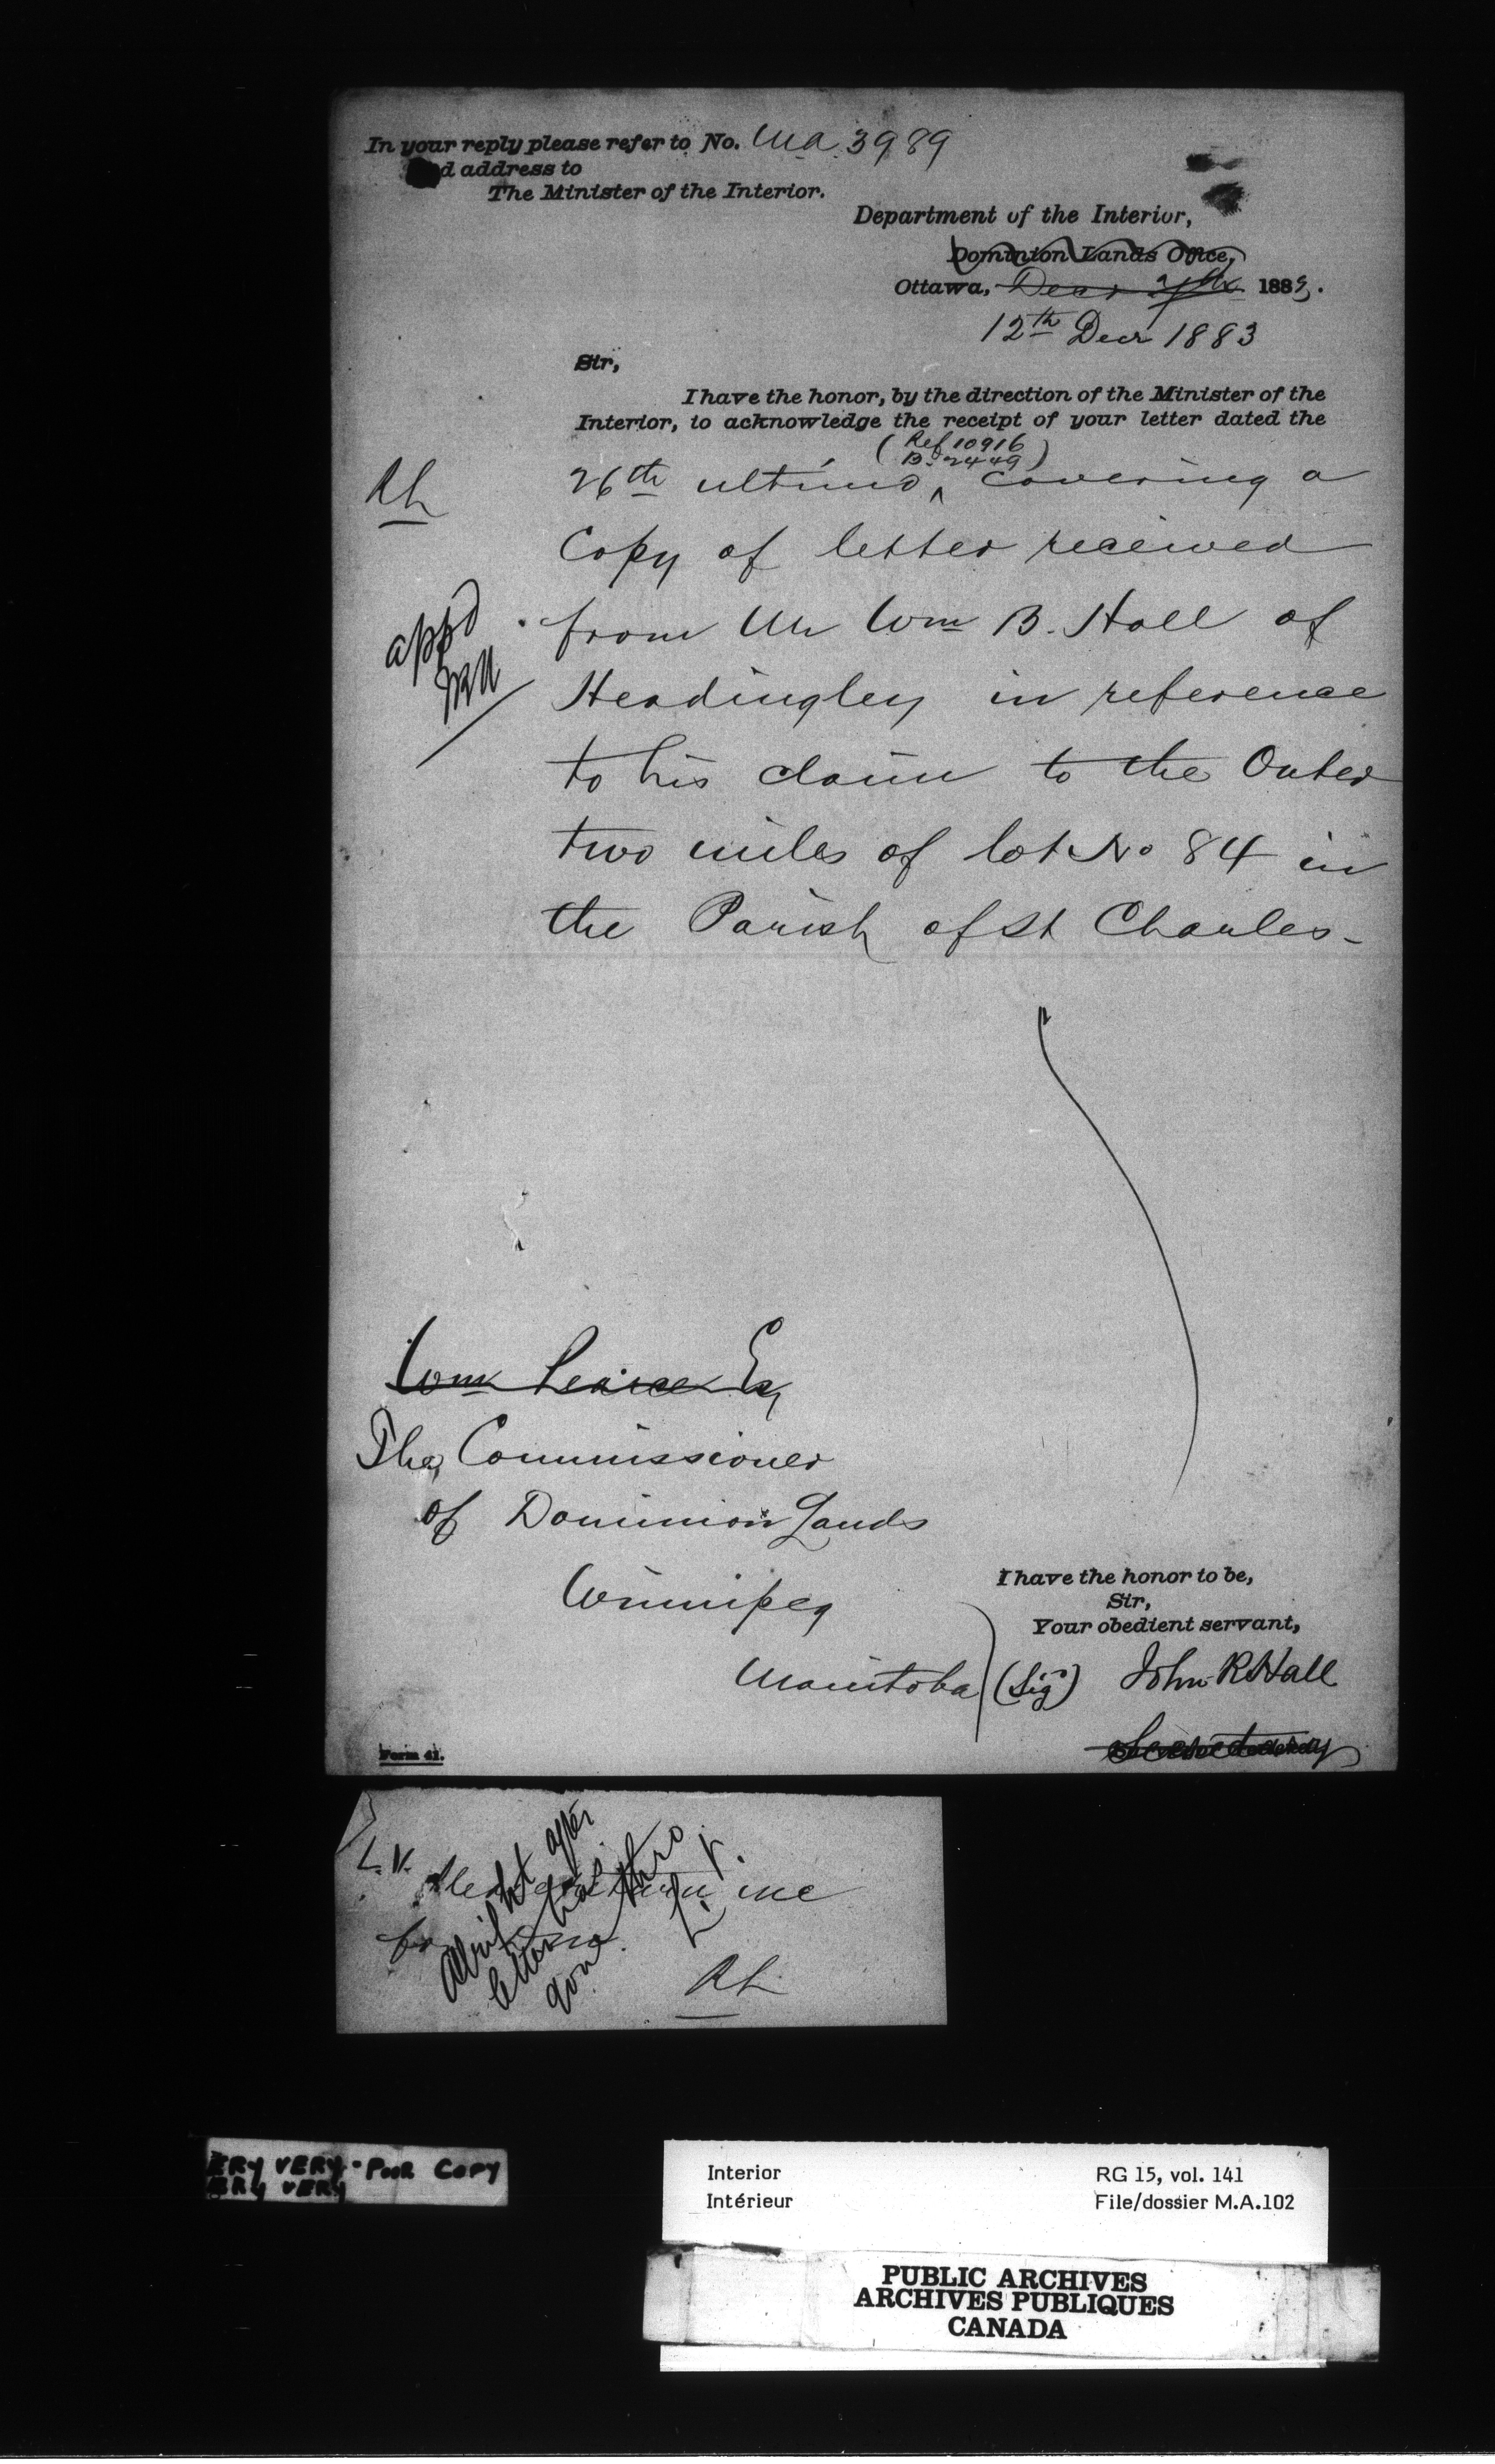 In your reply please refer to No. M.A. 3989
and address to
The Minister of the Interior.
Department of the Interior,
Dominion Lands Office,
Ottawa, Decr 1883.
12th Decr 1883
Sir,
I have the honor, by the direction of the Minister of the
Interior, to acknowledge the receipt of your letter dated the
(Ref 10916
B. 2449)
26th ultimo, covering a
Copy of letter received
from Mr Wm B. Hall of
Headingley in reference
to his claim to the Outer
two miles of lot No 84 in
the Parish of St Charles-
RL
appd
Wm Pearce Esq
The Commissioner
of Dominion Lands
Winnipeg
Manitoba
I have the honor to be,
Sir,
Your obedient servant,
(Sig) John R Hall
Secretary
Form 41.
L.V.
me
for
letter has
gone thro
L.V.
RL
ERY VERY-POOR COPY
ERY VERY
Interior RG 15, vol. 141
Intérieur File/dossier M.A.102
PUBLIC ARCHIVES
ARCHIVES PUBLIQUES
CANADA